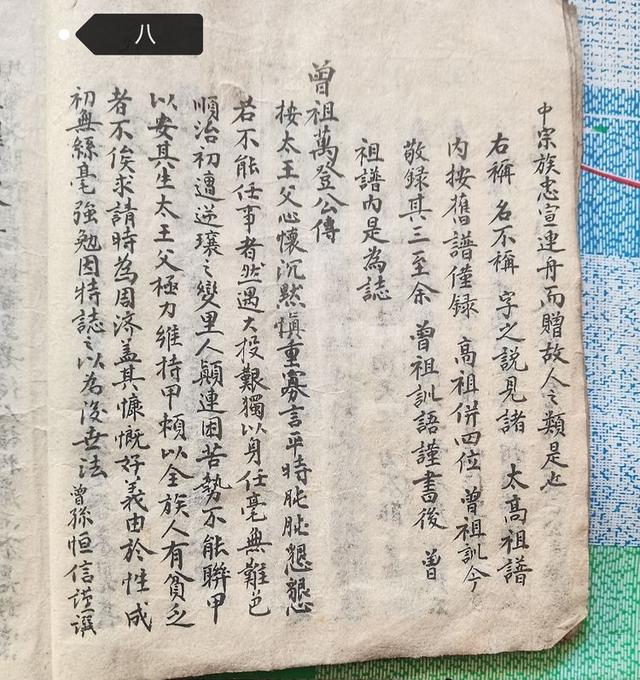 八
中宗族忠宣連舟而贈故人之類是也
右稱 名不稱 字之說見諸 太高祖譜
内按舊譜僅録 高祖併四位 曾祖訓今
敬録其三至余 曾祖訓語謹書後 曾
祖譜内是為誌
曾祖萬登公傳
按太王父心懷沉然慎重寡言平時肫肫懇懇
若不能任事者然遇大投艱獨以身任毫無難色
順治初遭逆瓌之變里人顛連困苦勢不能聯甲
以安其生太王父極力維持甲頼以全族人有貧乏
者不俟求請時為周济盖其慷慨好義由於性成
初無絲毫強勉因特誌之以為後世法 曾孫恒信謹譔